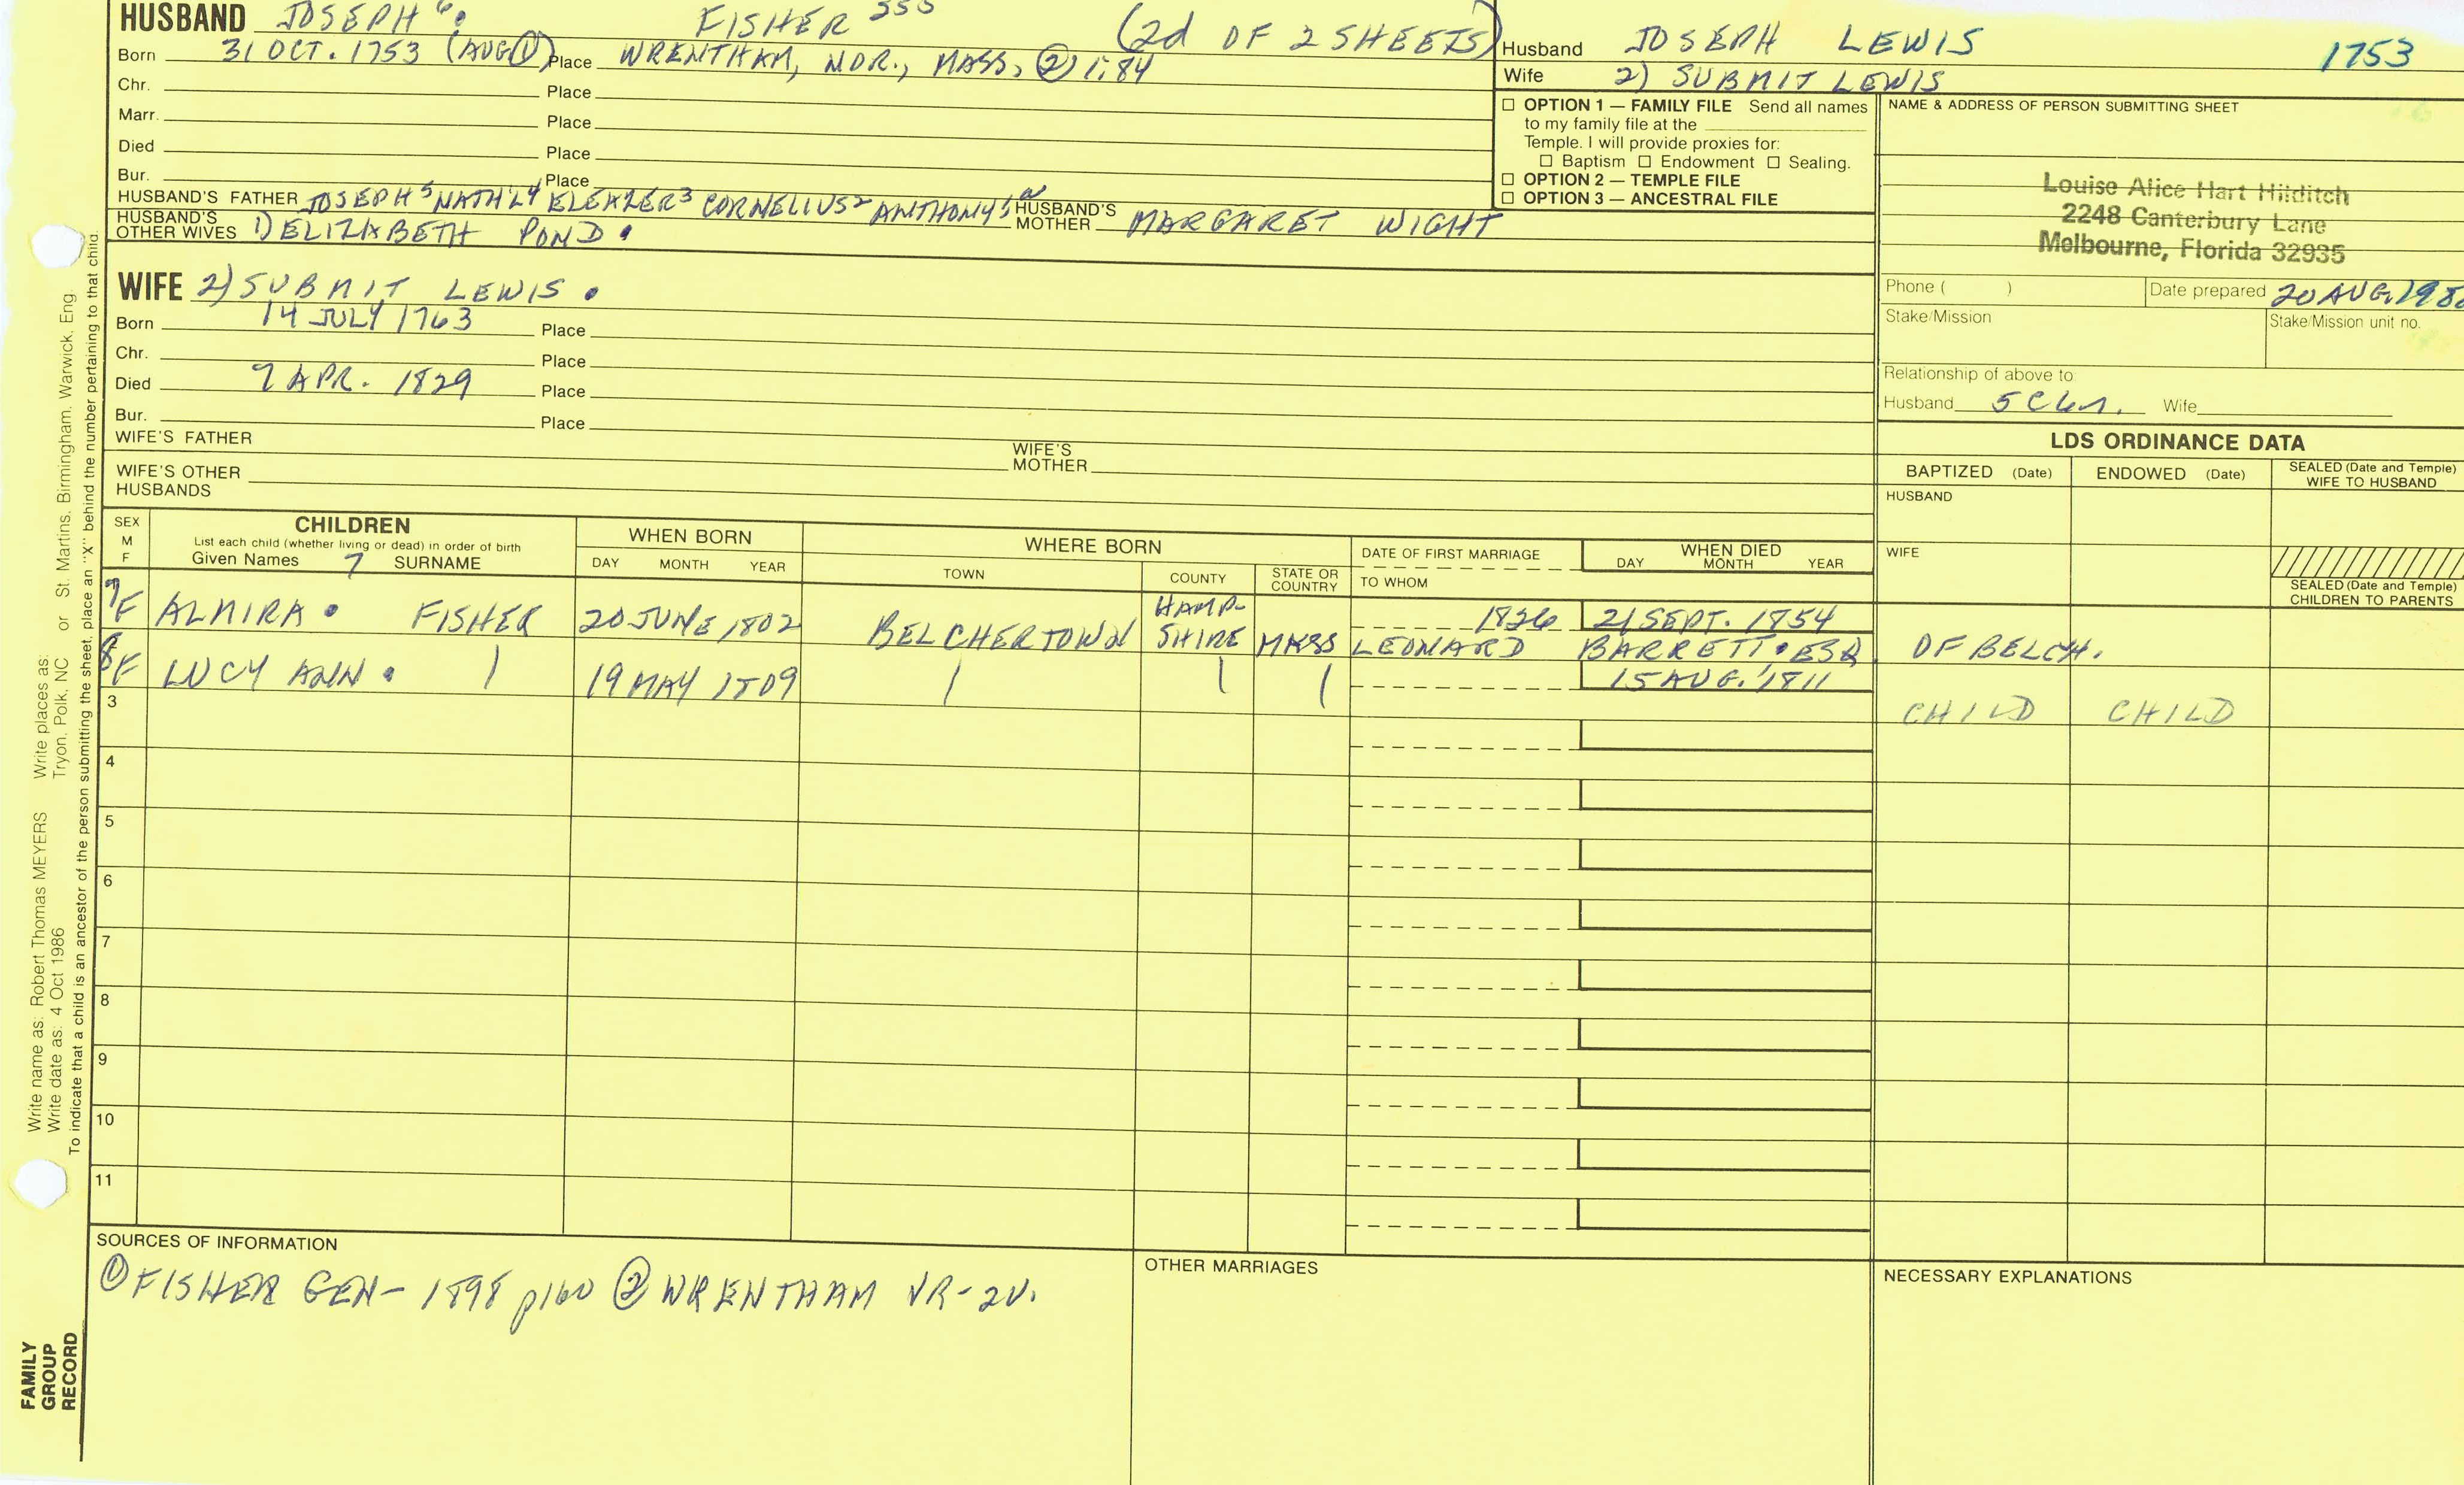 HUSBAND JOSEPH 6. FISHER (2d OF 2 SHEETS)
Born 31 OCT. 1753 (AUG ①) Place WRENTHAM, NOR., MASS. ② 1:84
Chr. Place
Marr. Place
Died Place
Bur. Place
HUSBAND'S FATHER JOSEPH5 NATH'L4 ELEAZER3 CORNELIUS2 ANTHONY1 HUSBAND'S MOTHER MARGARET WIGHT
HUSBAND'S OTHER WIVES 1) ELIZABETH POND.
Husband JOSEPH LEWIS 1753
Wife 2) SUBMIT LEWIS
☐ OPTION 1 — FAMILY FILE Send all names
to my family file at the
Temple. I will provide proxies for:
☐ Baptism ☐ Endowment ☐ Sealing.
☐ OPTION 2 — TEMPLE FILE
☐ OPTION 3 — ANCESTRAL FILE
NAME & ADDRESS OF PERSON SUBMITTING SHEET
Louise Alice Hart Hilditch
2248 Canterbury Lane
Melbourne, Florida 32935
Phone ( ) Date prepared 20 AUG. 198
Stake/Mission Stake/Mission unit no.
Relationship of above to
Husband Wife
WIFE 2) SUBMIT LEWIS.
Born 14 JULY 1763 Place
Chr. Place
Died 7 APR. 1829 Place
Bur. Place
WIFE'S FATHER WIFE'S MOTHER
WIFE'S OTHER HUSBANDS
LDS ORDINANCE DATA
BAPTIZED (Date) ENDOWED (Date) SEALED (Date and Temple) WIFE TO HUSBAND
HUSBAND
WIFE
SEALED (Date and Temple) CHILDREN TO PARENTS
SEX M F
CHILDREN
List each child (whether living or dead) in order of birth
Given Names 7 SURNAME
WHEN BORN
DAY MONTH YEAR
WHERE BORN
TOWN COUNTY STATE OR COUNTRY
DATE OF FIRST MARRIAGE
TO WHOM
WHEN DIED
DAY MONTH YEAR
7 F ALMIRA. FISHER 20 JUNE 1802 BELCHERTOWN HAMP-SHIRE MASS 1826 21 SEPT. 1854
LEONARD BARRETT. ESQ. OF BELCH.
8 F LUCY ANN. | 19 MAY 1809 | | | 15 AUG. 1811
CHILD CHILD
3
4
5
6
7
8
9
10
11
SOURCES OF INFORMATION
① FISHER GEN- 1898 p160 ② WRENTHAM VR-2V.
OTHER MARRIAGES
NECESSARY EXPLANATIONS
Write name as: Robert Thomas MEYERS Write places as: St. Martins, Birmingham, Warwick, Eng.
Write date as: 4 Oct 1986 Tryon, Polk, NC or
To indicate that a child is an ancestor of the person submitting the sheet, place an "X" behind the number pertaining to that child.
FAMILY
GROUP
RECORD